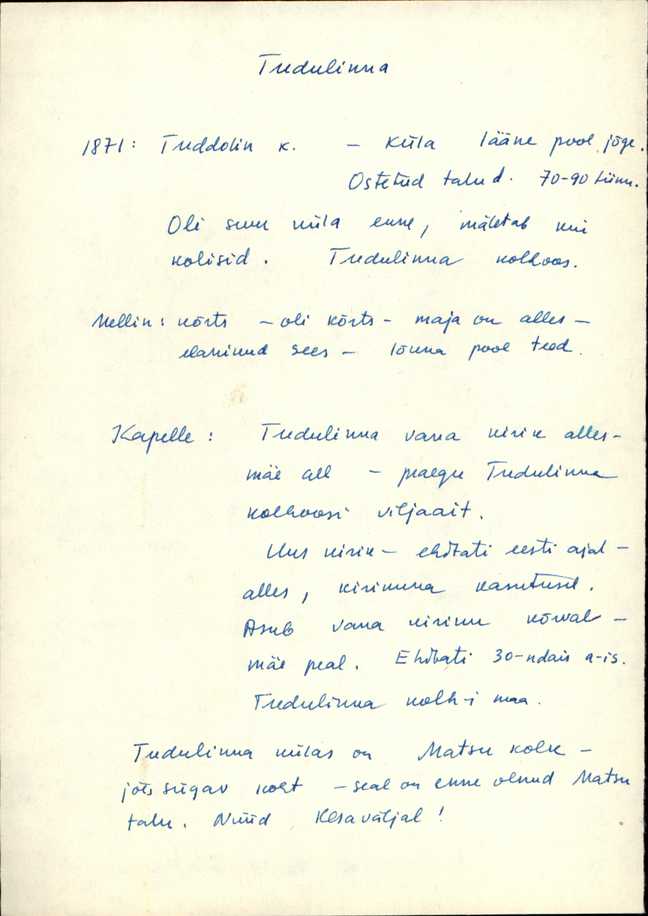 Tudulinna
1871: Tuddolin k. – Küla lääne pool jõge.
Ostetud talud. 70-90 tiinu.
Oli suur küla enne, mäletab kui
kolisid. Tudulinna kolhoos.
Mellin: kõrts – oli kõrts – maja on alles –
elanikud sees – lõuna pool teed.
Kapelle: Tudulinna vana kirik alles –
mäe all – praegu Tudulinna
kolhoosi viljaait.
Uus kirik – ehitati eesti ajal –
alles, kirikuna kasutusel.
Asub vana kiriku kõrval –
mäe peal. Ehitati 30-ndais a-is.
Tudulinna kolh-i maa.
Tudulinna külas on Matsu kolk –
jões sügav koht – seal on enne olnud Matsu
talu. Nüüd Kesaväljal!